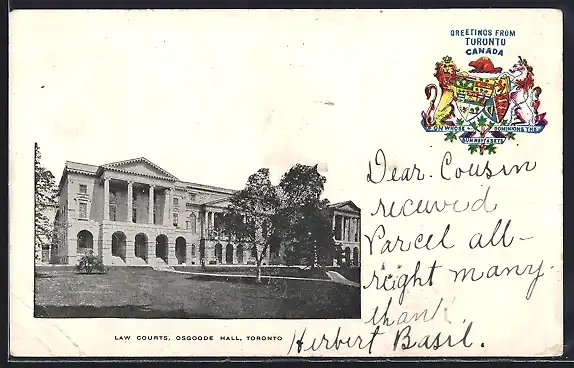 GREETINGS FROM
TORONTO
CANADA
ON WHOSE DOMINIONS THE
SUN NEVER SETS
Dear. Cousin
received
Parcel all-
right many.
thank.
Herbert Basil.
LAW COURTS, OSGOODE HALL, TORONTO